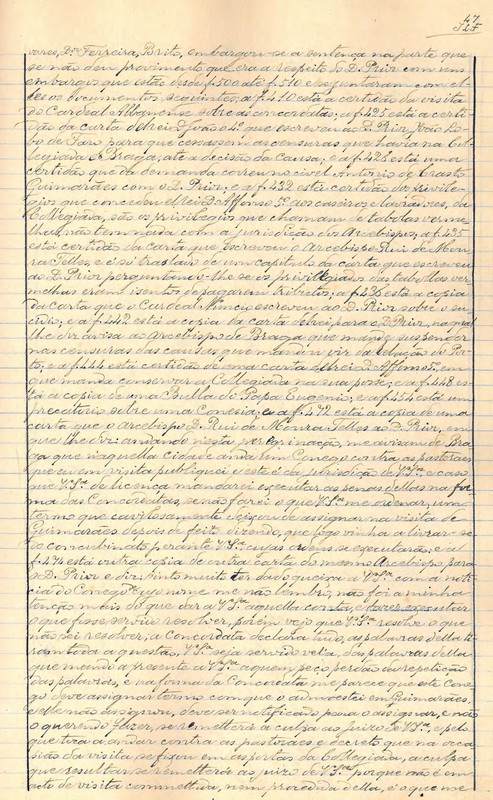 47
vares, D.or Ferreira, Brito, embargou-se a sentença na parte que
se não deu provimento que era a respeito do D. Prior com uns
embargos que estão desde f. 500 até f. 510 e se juntaram com el-
les os documentos seguintes; a f. 410 está a certidão da visita
do Cardeal Albanense sobre as concordatas; a f. 425 está a certi-
dão da carta de elrei D. João o 4º que escreveu ao D. Prior João Lo-
bo de Faro para que cessassem as censuras que havia na Col-
legiada de Braga, até a decisão da Causa, e a f. 428 está uma
certidão que da demanda correu no civel Antonio de Crasto
Guimarães com o D. Prior, e a f. 432 está certidão dos privile-
gios que concedeu elrei D. Affonso 5º aos caseiros e lavradores, da
Collegiada, são os privilegios que chamam de tabolas verme-
lhas, não tem nada com a jurisdicção dos Arcebispos, a f. 435
está certidão da carta que escreveu o Arcebispo Rui de Mou-
ra Telles, e é só traslado de um capitulo da carta que escreveu
ao D. Prior perguntando-lhe se os privilegiados das tabollas ver-
melhas eram isentos de pagarem tributos; a f. 436 está a copia
da carta que o Cardeal Nuncio escreveu ao D. Prior sobre o su-
cidio; e a f. 442 está a copia da carta de elrei para o D. Prior, na qual
lhe diz avisa ao arcebispo de Braga que mande suspender
nas censuras das causas que mandou vir da Relação do Por-
to, e a f. 444 está certidão de uma carta de elrei D. Affonso 5º, em
que manda conservar a Collegiada na sua posse; e a f. 448 es-
tá a copia de uma Bulla do Papa Eugenio; e a f. 454 está um
precatorio sobre uma Conesia; e a f. 472 está a copia de uma
carta que o arcebispo D. Rui de Moura Telles ao D. Prior, em
que lhe diz: andando nesta peregrinação, me avisam de Bra-
ga que naquella cidade anda um Conego contra as pastoraes
que eu em visita publiquei e este é da jurisdição de V. S.ria e caso
que V. S.ria de licença mandarei executar as penas dellas na for-
ma das Concordatas, se não farei o que V. S.ria me ordenar, um
termo que cavilosamente deixou de assignar na visita de
Guimarães depois de feito dizendo, que logo vinha a livrar-se
do concubinato perante V. S.ria cujas ordens se executarão; e a
f. 474 está outra copia de outra carta do mesmo Arcebispo, para
o D. Prior e diz sinto muito ter dado queixa a V. S.ria com a noti-
cia do Conego cujo nome me não lembro, não foi a minha
tenção mais do que dar a V. S.ria aquella conta, e fazer executar
o que fosse servido resolver, porem vejo que V. S.ria resolve o que
não sei resolver; a Concordata declara tudo, as palavras della ti-
ram toda a questão, V. S.ria seja servido vel-a, das palavras della
que mando a presente a V. S.ria a quem peço perdão da repetição
das palavras, e na forma da Concordata me parece que este Cone-
go deve assignar termo com que o admoestei em Guimarães,
e elle não assignou, deve ser notificado para o assignar, e não
o querendo fazer, se remetterá a culpa ao juizo de V. S.ria, e pelo
que toca a andar contra as pastoraes e decreto que na occa-
sião da visita, se fixou em as portas da Collegiada, a culpa
que resultar se remetterá ao juizo de V. S.ria porque não é em
acto de visita commettida, nem procedida della, é o que me